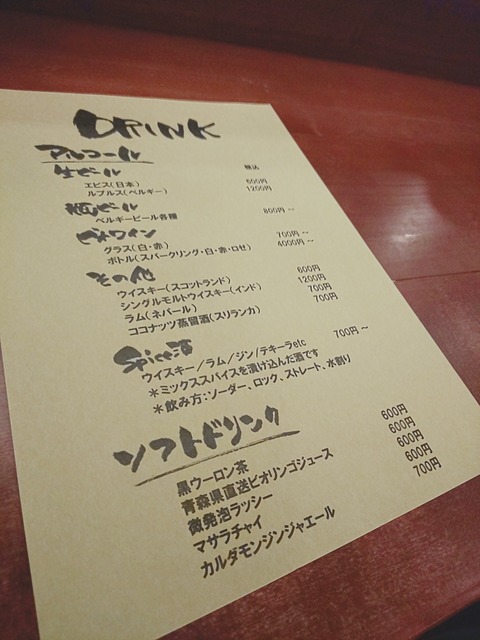 DRINK
アルコール
税込
生ビール
エビス(日本) 600円
ルプルス(ベルギー) 1200円
瓶ビール
ベルギービール各種 800円 ~
ビオワイン
グラス(白・赤) 700円 ~
ボトル(スパークリング・白・赤・ロゼ) 4000円 ~
その他
ウイスキー(スコットランド) 600円
シングルモルトウイスキー(インド) 1200円
ラム(ネパール) 700円
ココナッツ蒸留酒(スリランカ) 700円
Spice酒
ウイスキー/ラム/ジン/テキーラetc 700円 ~
*ミックススパイスを漬け込んだ酒です
*飲み方:ソーダー、ロック、ストレート、水割り
ソフトドリンク
黒ウーロン茶 600円
青森県直送ビオリンゴジュース 600円
微発泡ラッシー 600円
マサラチャイ 600円
カルダモンジンジャエール 700円